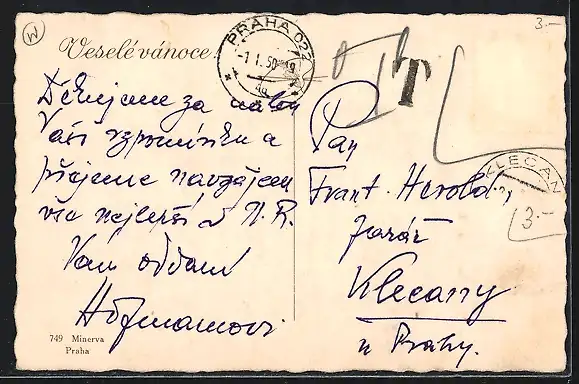 W
3.-
Veselé vánoce
PRAHA 02
-1.1.50-19
4a
T
Děkujeme za milou
Vaši vzpomínku a
přejeme navzájem
vše nejlepší d N.R.
Vám oddaní
Hofmanovi
Pan
Frant. Herold,
farář
Klecany
u Prahy.
KLECAN
3.-
749 Minerva
Praha